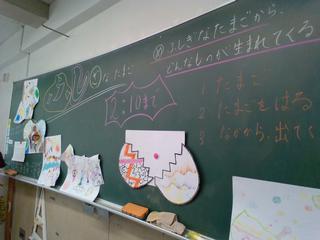 ふしぎなたまご
㋱ ふしぎなたまごから、
どんなものが生まれてくる
2:10まで
1 たまご
2 たまごをはる
3 なかから、出てく